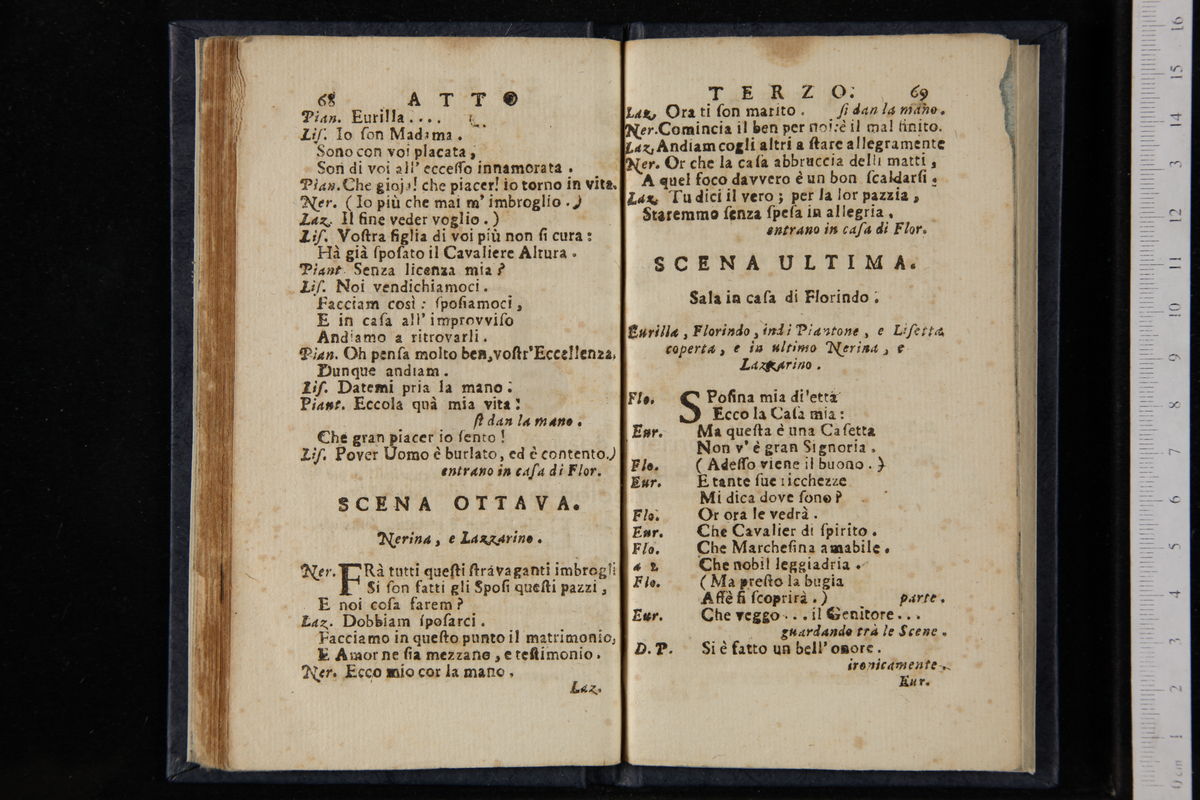 68 ATTO
Pian. Eurilla ....
Lis. Io son Madama.
Sono con voi placata,
Son di voi all' eccesso innamorata.
Pian. Che gioja! che piacer! io torno in vita.
Ner. (Io più che mai m' imbroglio.)
Laz. Il fine veder voglio.)
Lis. Vostra figlia di voi più non si cura:
Hà già sposato il Cavaliere Altura.
Piant. Senza licenza mia?
Lis. Noi vendichiamoci.
Facciam così: sposiamoci,
E in casa all' improvviso
Andiamo a ritrovarli.
Pian. Oh pensa molto ben, vostr'Eccellenza,
Dunque andiam.
Lis. Datemi pria la mano.
Piant. Eccola quà mia vita:
si dan la mano.
Che gran piacer io sento!
Lis. Pover Uomo è burlato, ed è contento.)
entrano in casa di Flor.
SCENA OTTAVA.
Nerina, e Lazzarino.
Ner. FRà tutti questi stravaganti imbrogli
Si son fatti gli Sposi questi pazzi,
E noi cosa farem?
Laz. Dobbiam sposarci.
Facciamo in questo punto il matrimonio,
E Amor ne sia mezzano, e testimonio.
Ner. Ecco mio cor la mano.
Laz.
TERZO. 69
Laz. Ora ti son marito. si dan la mano.
Ner. Comincia il ben per noi: è il mal finito.
Laz. Andiam cogli altri a stare allegramente
Ner. Or che la casa abbruccia delli matti,
A quel foco davvero è un bon scaldarsi.
Laz. Tu dici il vero; per la lor pazzia,
Staremmo senza spesa in allegria.
entrano in casa di Flor.
SCENA ULTIMA.
Sala in casa di Florindo.
Eurilla, Florindo, indi Piantone, e Lisetta
coperta, e in ultimo Nerina, e
Lazzarino.
Flo. SPosina mia diletta
Ecco la Casa mia:
Eur. Ma questa è una Casetta
Non v' è gran Signoria.
Flo. (Adesso viene il buono.)
Eur. E tante sue ricchezze
Mi dica dove sono?
Flo. Or ora le vedrà.
Eur. Che Cavalier di spirito.
Flo. Che Marchesina amabile.
a 2 Che nobil leggiadria.
Flo. (Ma presto la bugia
Affè si scoprirà.) parte.
Eur. Che veggo... il Genitore...
guardando trà le Scene.
D. P. Si è fatto un bell' onore.
ironicamente.
Eur.